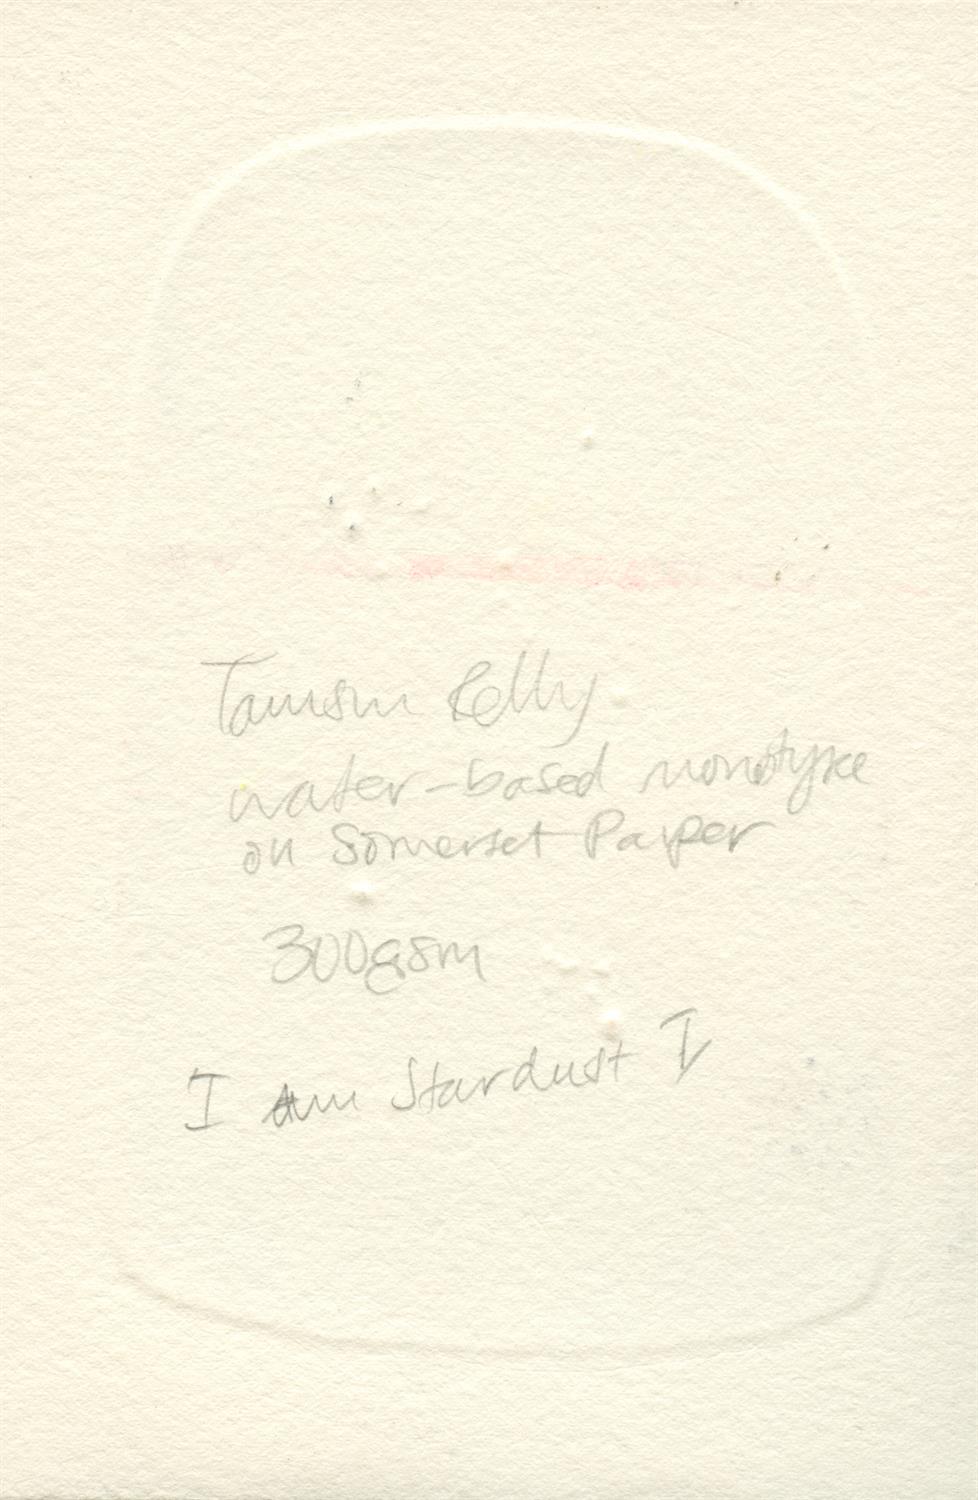 Tamsin Relly
water-based monotype
on Somerset Paper
300gsm
I Am Stardust I